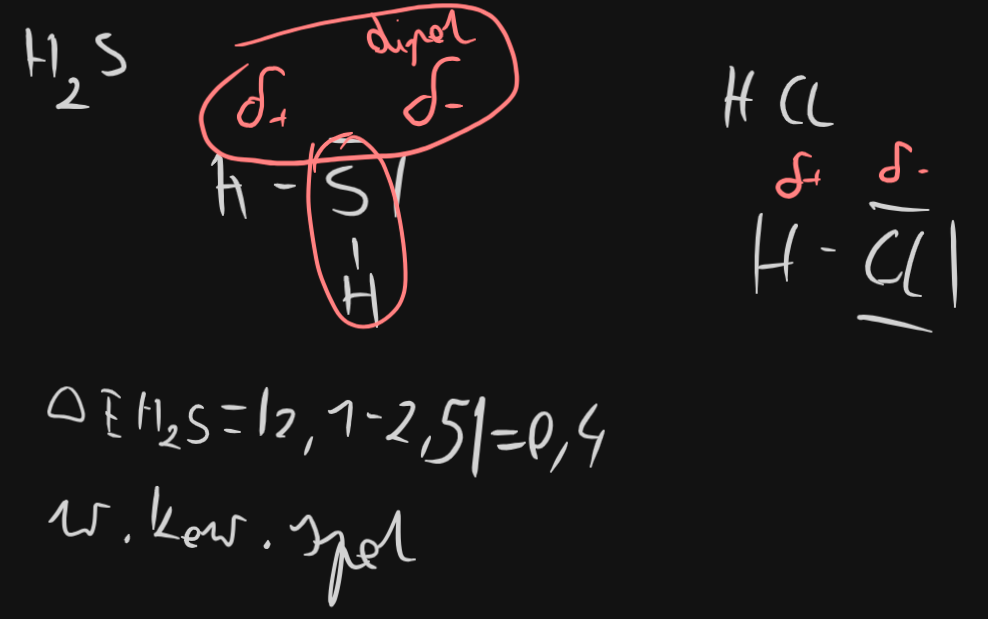 H₂S
dipol
δ+ δ-
H - S|
|
H
HCl
δ+ δ-
H - Cl|
ΔEH₂S=|2,1-2,5|=0,4
w. kow. spol